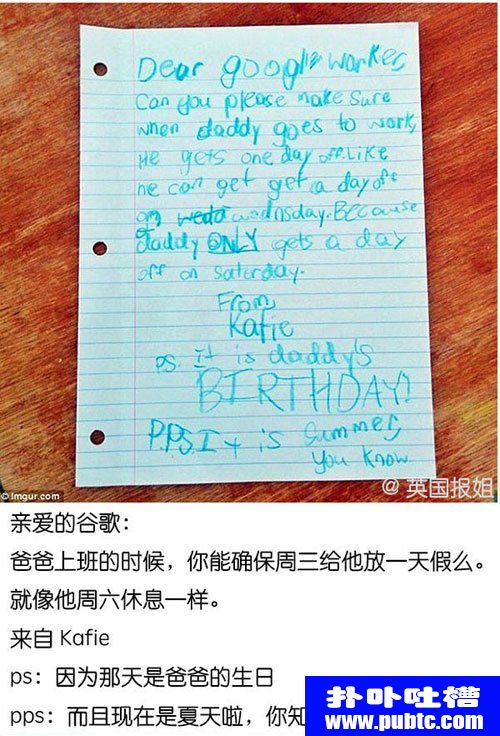 Dear google worker,
Can you please make sure
when daddy goes to work,
He gets one day off. Like
he can get get a day off
on weda wednsday. Because
daddy ONLY gets a day
off on saturday.
From,
Kafie
ps. It is daddy's
BIRTHDAY!
P.P.S. It is summer,
you know
© Imgur.com
@英国报姐
亲爱的谷歌：
爸爸上班的时候，你能确保周三给他放一天假么。
就像他周六休息一样。
来自 Kafie
ps：因为那天是爸爸的生日
pps：而且现在是夏天啦，你知
扑卟吐槽
www.pubtc.com